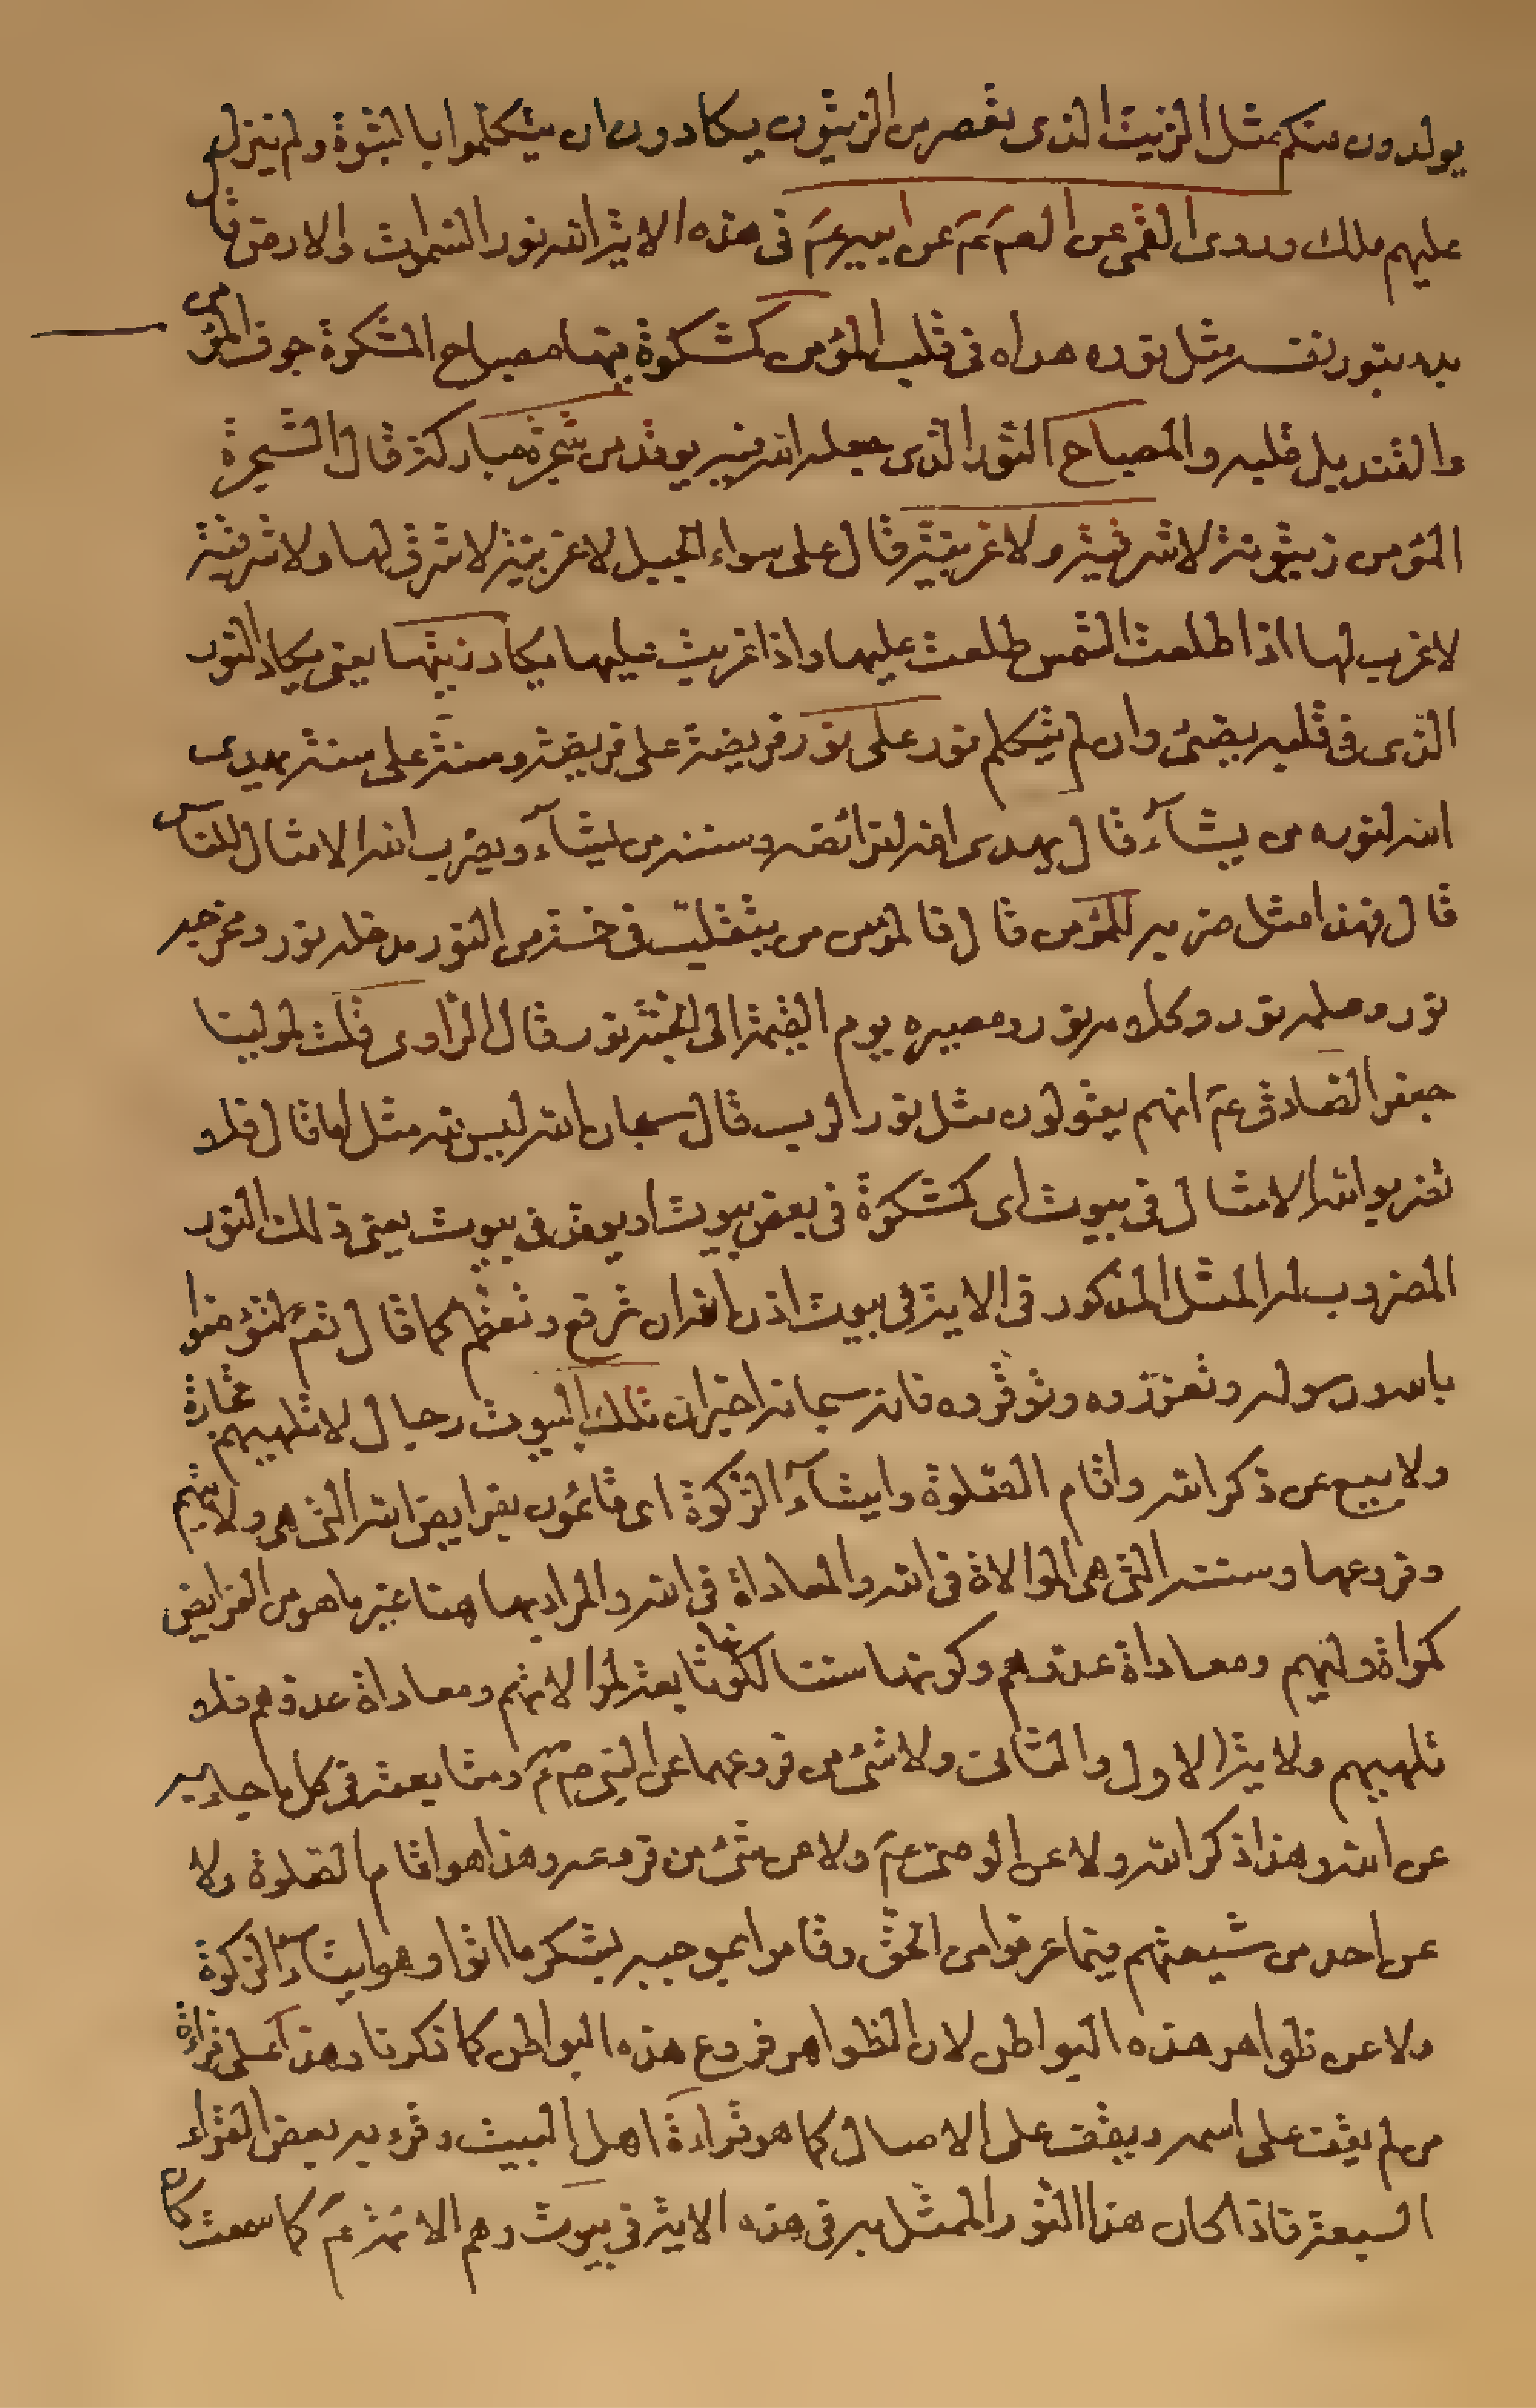 يولدون منكم مثل الزيت الذى يعصر من الزيتون يكادون ان يتكلموا بالنبوة ولم ينزل
عليهم ملك وروى القمى عن الصم عم عن ابيه عم فى هذه الاية الله نور السموات والارض قال
بدء بنور نفسه مثل نوره هداه فى قلب المؤمن كمشكوة فيها مصباح المشكوة جوف المؤمن
والقنديل قلبه والمصباح النور الذى جعله الله فيه يوقد من شجرة مباركة قال الشجرة
المؤمن زيتونة لا شرقية ولا غربية قال على سواء الجبل لا غربية لا شرق لها ولا شرقية
لا غرب لها اذا طلعت الشمس طلعت عليها واذا غربت عليها يكاد زيتها يعنى يكاد النور
الذى فى قلبه يضئ وان لم يتكلم نور على نور فريضة على فريضة وسنة على سنة يهدى
الله لنوره من يشآء قال يهدى الله لفرائضه وسننه من يشآء ويضرب الله الامثال للناس
قال فهذا مثل ضربه للمؤمن قال فالمؤمن من يتقلب فى خمسة من النور مدخله نور ومخرجه
نور وعلمه نور وكلامه نور ومصيره يوم القيمة الى الجنة نور قال الراوى قلت
جعفر الصادق عم انهم يقولون مثل نور الرب قال سبحان الله ليس لله مثل اما قال فلا
تضربوا لله الامثال فى بيوت اى كمشكوة فى بعض بيوت او يوقد فى بيوت يعنى ذلك النور
المضروب له المثل المذكور فى الاية فى بيوت اذن الله ان ترفع وتعظم كما قال تعم لتؤمنوا
بالله ورسوله وتعزروه وتوقروه فانه سبحانه اخبر ان تلك البيوت رجال لا تلهيهم تجارة
ولا بيع عن ذكر الله واقام الصلوة وايتآء الزكوة اى قائمون بفرايض الله التى هى ولايتهم
وفروعها وسننه التى هى الموالاة فى الله والمعاداة فى الله والمراد بها هنا غير ما هو من الفرايض
كموالاة وليهم ومعاداة عدوهم وكونها سننا لكونها تابعة لموالاتهم ومعاداة عدوهم فلا
تلهيهم ولاية الاول والثانى ولا شئ من فروعها عن النبى صم ومتابعته فى كل ما جاء به
عن الله وهذا ذكر الله ولا عن الوصى عم ولا من شئ من فروعه وهذا هو اقام الصلوة ولا
عن احد من شيعتهم فيما عرفوا من الحق وقاموا بموجبه بشكر ما اتوا وهو ايتآء الزكوة
ولا عن ظواهر هذه البواطن لان الظواهر فروع هذه البواطن كما ذكرنا وهذا على قراءة
من لم يقف على اسمه ويقف على الاصال كما هو قراءة اهل البيت وقرء به بعض القراء
السبعة فاذا كان هذا النور الممثل به فى هذه الاية فى بيوت وهم الائمة عم كما سمعت كان